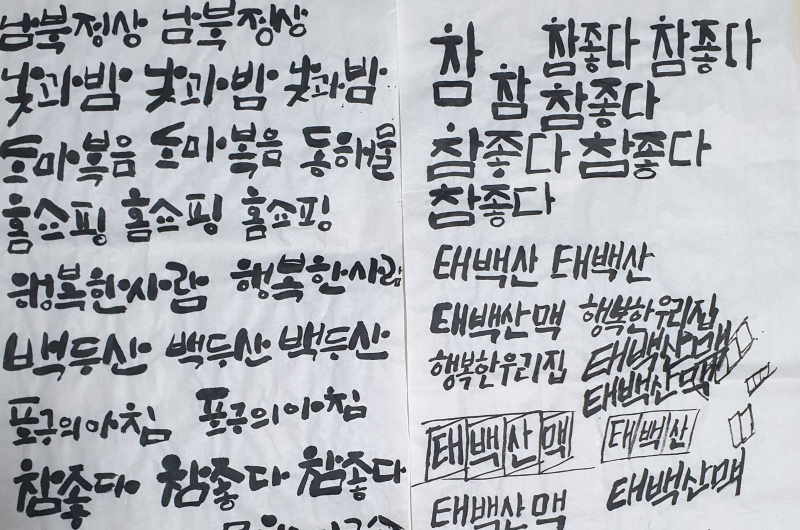 남북정상 남북정상
낮과밤 낮과밤 낮과밤
도마볶음 도마볶음 동해물
홈쇼핑 홈쇼핑 홈쇼핑
행복한사람 행복한사람
백두산 백두산 백두산
포구의아침 포구의아침
참좋다 참좋다 참좋다
참 참좋다 참좋다
참 참좋다
참좋다 참좋다
참좋다
태백산 태백산
태백산맥 행복한우리집
행복한우리집 태백산맥
태백산맥
태백산맥 태백산
태백산맥 태백산맥